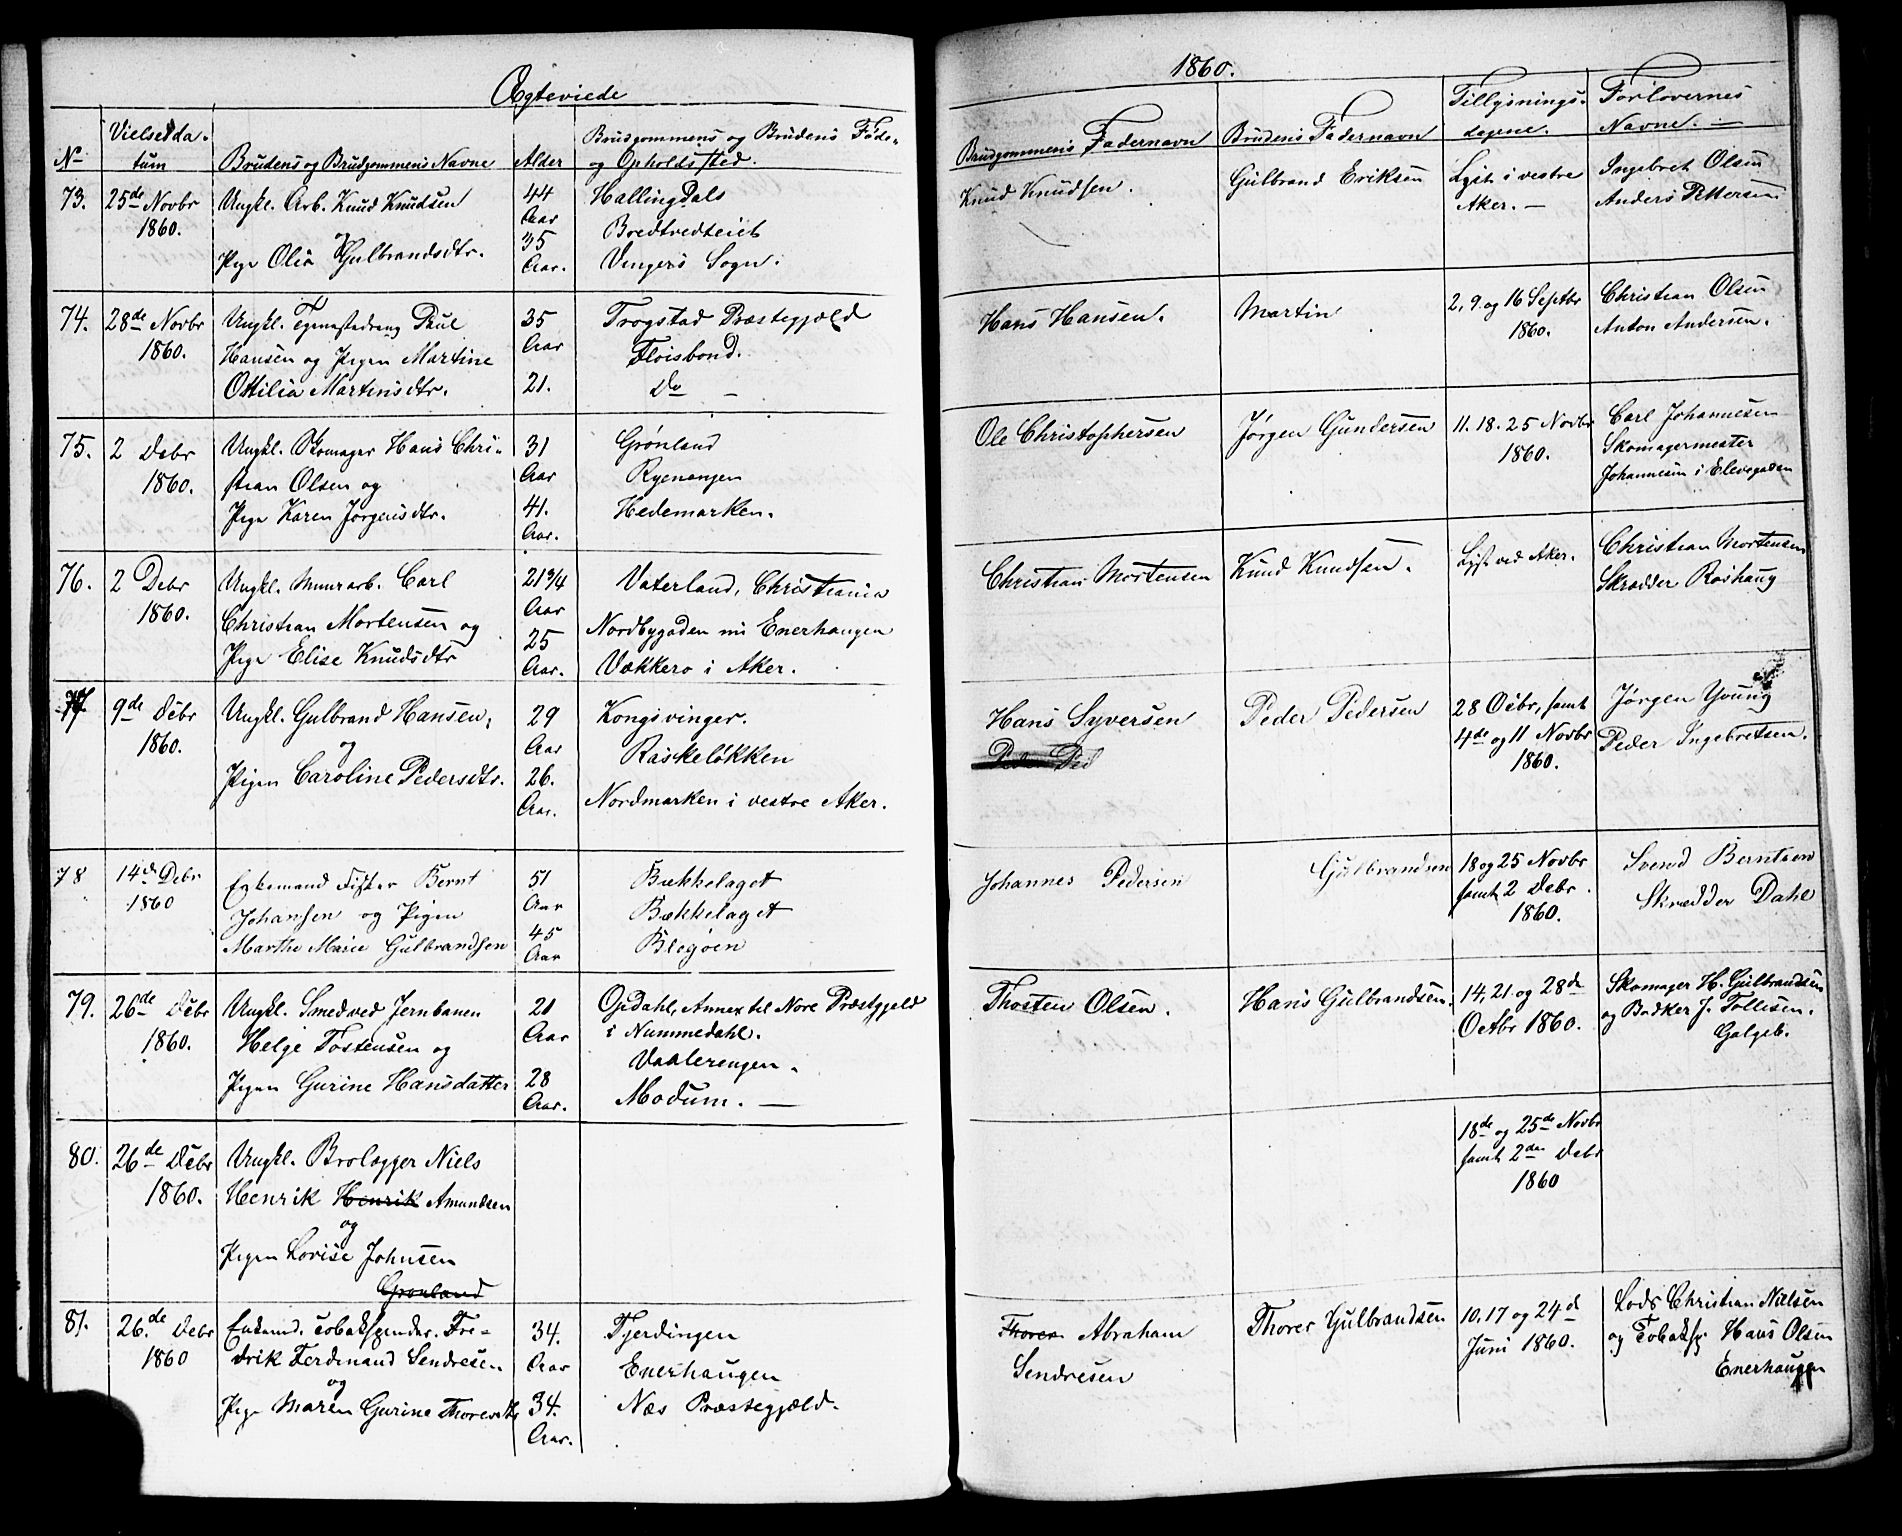 Ægteviede
No
Vielsesda-
tum
Brudens og Brudgommens Navne
Alder
Brudgommens og Brudens Føde-
og Opholdssted.
73.
25de Novbr
1860.
Ungkl. Arb. Knud Knudsen
og
Pige Olia Gulbrandsdtr.
44
Aar
35
Aar.
HallingDals
Bredtvedteiet
Vingers Sogn.
74.
28de Novbr
1860.
Ungkl. Paul
Hansen og Pigen Martine
Ottilia Martinsdtr.
35
Aar
21.
Trogstad Præstegjæld
Floisbond.
Do —
75.
2 Debr
1860.
Ungkl. Skomager Hans Chri-
stian Olsen og
Pige Karen Jørgensdtr.
31
Aar
41.
Aar.
Grønland
Ryenangen
Hedemarken.
76.
2 Debr
1860.
Ungkl. Muurarb. Carl
Christian Mortensen og
Pige Elise Knudsdtr
21 3/4
Aar
25
Aar.
Vaterland, Christiania
Nordbygaden nu Enerhaugen
Vækkerø i Aker.
77.
9de Debr
1860.
Ungkl. Gulbrand Hansen,
og
Pigen Caroline Pedersdtr.
29
Aar
26.
Aar.
Kongsvinger.
Raskeløkken
Nordmarken i vestre Aker.
78
14de Debr
1860
Enkemand Fisker Bernt
Johansen og Pigen
Marthe Marie Gulbrandsen
51
Aar
45
Aar
Bækkelaget
Bækkelaget
79.
26de Debr
1860.
Ungkl. Smed ved Jernbanen
Helge Tostensen og
Pigen Gurine Hansdatter
21
Aar
28
Aar.
Opdahl, Annex til Nore Præstgjeld
i Nummedahl.
Vaalerengen.
Modum. —
80.
26de Debr
1860.
Ungkl. Brolægger Niels
Henrik Henrik Amundsen
og
Pigen Lovise Johnsen
Grønland
81.
26de Debr
1860
Enkemd. Tobakspinder. Fre-
drik Ferdinand Sendresen
og
Pige Maren Gurine
34.
Aar
34.
Aar.
Fjerdingen
Enerhaugen
Næs Præstegjæld.
1860.
Brudgommens Fadernavn
Brudens Fadernavn
Tillysnings-
dagene.
Forlovernes
Navne. —
Knud Knudsen.
Gulbrand Eriksen
Lyst i vestre
Aker. —
Ingebret Olsen
Anders Pettersen
Hans Hansen.
Martin
2, 9. og 16 Septbr
1860.
Christian Olsen
Anton Andersen.
Ole Christophersen
Jørgen Gundersen
11. 18. 25 Novbr
1860.
Carl Johannesen
Skomagermester
Johannesen i Elvegaden
Christian Mortensen
Knud Knudsen.
Lyst ved Aker.
Christian Mortensen
Skrædder Roshaug
Hans Syversen
Peder Ped
Peder Pedersen
28 Octbr, samt
4de og 11 Novbr
1860.
Jørgen Young
Peder Ingebretsen.
Johannes Pedersen
Gulbrandsen
18 og 25 Novbr
samt 2 Debr.
1860.
Svend Berntsen
Skrædder Dahl
Thosten Olsen.
Hans Gulbrandsen.
14, 21 og 28de
Octbr 1860.
Skomager H. Gulbrandsen
og Bødker J. Tollisen.
Galgeb.
18de og 25de Novbr
samt 2den Debr
1860
Thorer Abraham
Sendresen
Thorer Gulbrandsen
10, 17 og 24de
Juni 1860.
Lods Christian Nilsen
og Tobaksp. Hans Olsen
Enerhaugen